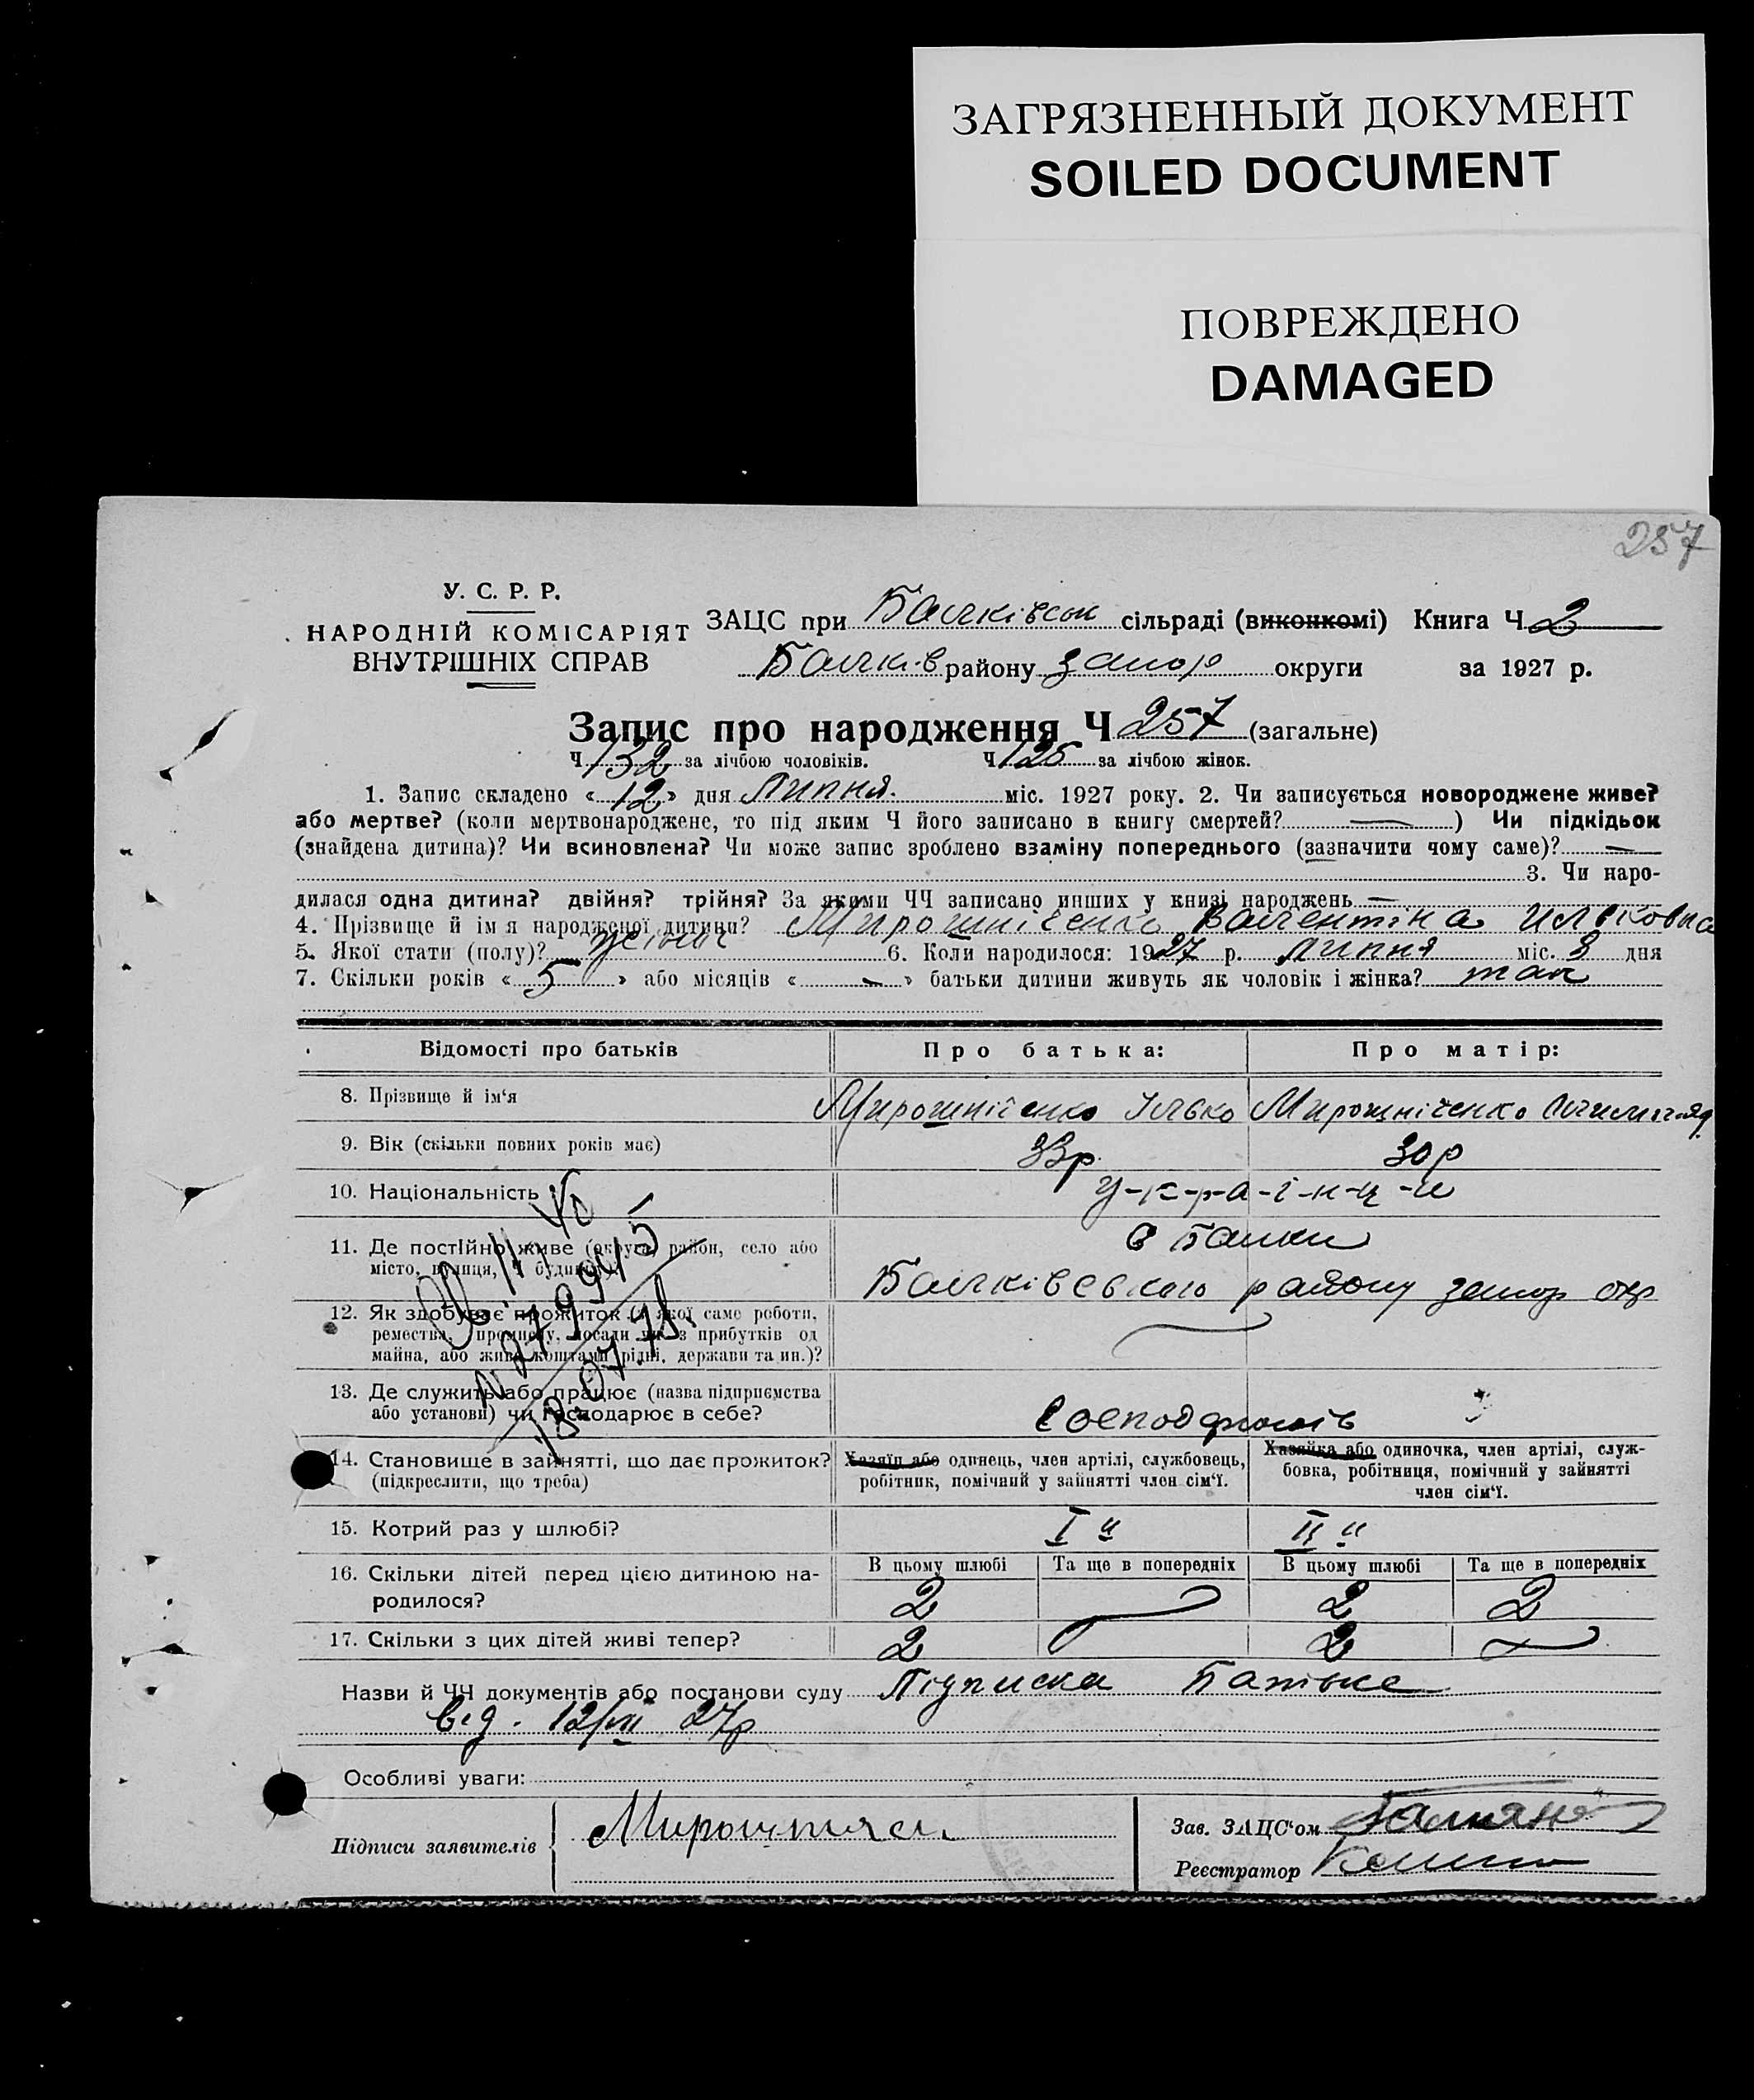 ЗАГРЯЗНЕННЫЙ ДОКУМЕНТ
SOILED DOCUMENT
ПОВРЕЖДЕНО
DAMAGED
257
У. С. Р. Р.
НАРОДНІЙ КОМІСАРІЯТ
ВНУТРІШНІХ СПРАВ
ЗАЦС при Балківськ сільраді (виконкомі) Книга Ч 2
Балків району запор округи за 1927 р.
Запис про народження Ч 257 (загальне)
Ч 132 за лічбою чоловіків. Ч 125 за лічбою жінок.
1. Запис складено « 12 » дня Липня. міс. 1927 року. 2. Чи записується новороджене живе?
або мертве? (коли мертвонароджене, то під яким Ч його записано в книгу смертей? — ) Чи підкідьок
(знайдена дитина)? Чи всиновлена? Чи може запис зроблено взаміну попереднього (зазначити чому саме)? —
3. Чи наро-
дилася одна дитина? двійня? трійня? За якими ЧЧ записано инших у книзі народжень —
4. Прізвище й ім я народженої дитини? Мирошніченко Валентіна Ильковна
5. Якої стати (полу)? жіноч 6. Коли народилося: 1927 р. липня міс. 8 дня
7. Скільки років « 5 » або місяців « — » батьки дитини живуть як чоловік і жінка? так
Відомості про батьків Про батька: Про матір:
8. Прізвище й ім‘я Мирошніченко Ілько Мирошніченко
9. Вік (скільки повних років має) 33р. 30 р
10. Національність у-к-р-а-ї-н-ц-и
11. Де постійно живе (округа, район, село або
місто, вулиця, Ч будинку)?
с Балки
Балківського району запор окр
12. Як здобуває прожиток (з якої саме роботи,
ремества, промислу, посади чи з прибутків од
майна, або живе коштами рідні, держави та ин.)?
13. Де служить або працює (назва підприємства
або установи) чи господарює в себе?
14. Становище в зайнятті, що дає прожиток?
(підкреслити, що треба)
Хазяїн або одинець, член артілі, службовець,
робітник, помічний у зайнятті член сім‘ї.
Хазяйка або одиночка, член артілі, служ-
бовка, робітниця, помічний у зайнятті
член сім‘ї.
15. Котрий раз у шлюбі? I й II й
16. Скільки дітей перед цією дитиною на-
родилося?
В цьому шлюбі Та ще в попередніх В цьому шлюбі Та ще в попередніх
2 — 2 2
17. Скільки з цих дітей живі тепер? 2 — 2 —
Назви й ЧЧ документів або постанови суду Підписка Батька
від. 12/VII 27р
Особливі уваги:
Підписи заявителів
Зав. ЗАЦС‘ом
Реєстратор